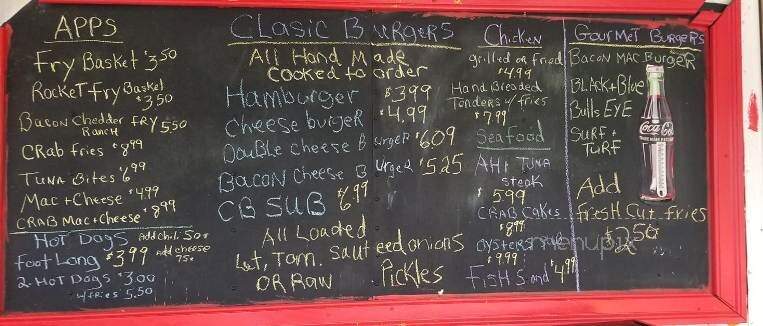 APPS
Fry Basket $350
Rocket fry Basket
$350
Bacon Chedder FRY 550
Ranch
CRab fries $899
TUNA Bites 699
Mac + Cheese $499
CRAB Mac + Cheese $899
HOT DOGS Add chili 50¢
foot Long $399 add cheese 75¢
2 HOT DOGS $300
w/fries 5.50
CLASIC BURGERS
All Hand Made
Cooked to order
Hamburger $399
Cheese burgeR $4.99
DouBLe cheese BurgeR $609
Bacon Cheese BurgeR $525
CB SUB $6.99
All Loaded
Let, Tom. Sauteed onions
OR Raw Pickles
Chicken
grilled or fried
$499
Hand Breaded
Tenders w/ fries
$799
Seafood
AHI TUNA
steak
$599
CRAB Cakes
$899
OYSTERS
$999
FISH Sand $499
GourMeT BurgeRs
Bacon MAC BurgeR
BLACK + Blue
Bulls EYE
SURF +
TURF
Coca-Cola
Add
fresh Cut fries
$250
menupix